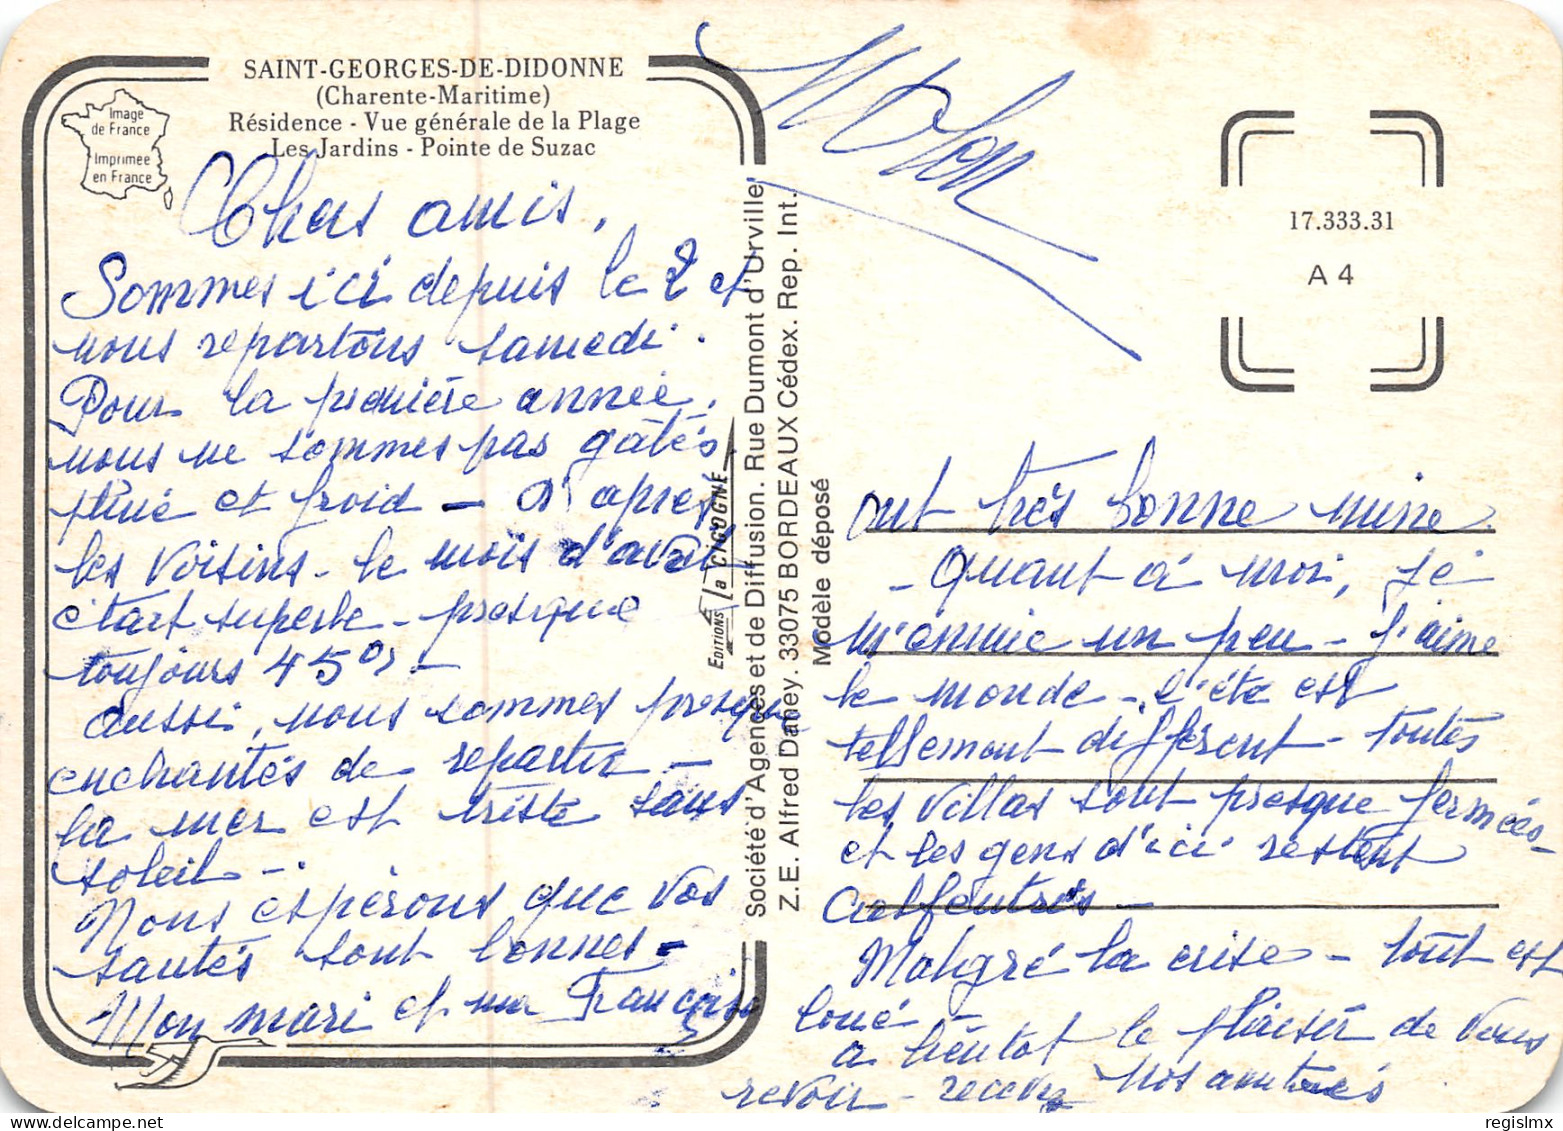 SAINT-GEORGES-DE-DIDONNE
(Charente-Maritime)
Résidence - Vue générale de la Plage
Les Jardins - Pointe de Suzac
Image
de France
Imprimée
en France
Chers amis,
Sommes ici depuis le 2 et
nous repartons samedi.
Pour la première année,
nous ne sommes pas gâtés
pluie et froid - D'après
les voisins - le mois d'avril
était superbe - presque
toujours 45°
aussi, nous sommes presque
enchantés de repartir -
la mer est triste sans
soleil - .
Nous espérons que vos
santés sont bonnes -
Mon mari et ma Françoise
Editions La CIGOGNE
Société d'Agences et de Diffusion. Rue Dumont d'Urville,
Z.E. Alfred Daney. 33075 BORDEAUX Cédex. Rep. Int.
Modèle déposé
17.333.31
A 4
ont très bonne mine.
- Quant à moi, je
m'ennuie un peu - J'aime
le monde - l'été est
tellement différent - toutes
les villas sont presque fermées -
et les gens d'ici restent
calfeutrés -
Malgré la crise - tout est
loué -
a bientot le plaisir de vous
revoir - recevez nos amitiés
regislmx